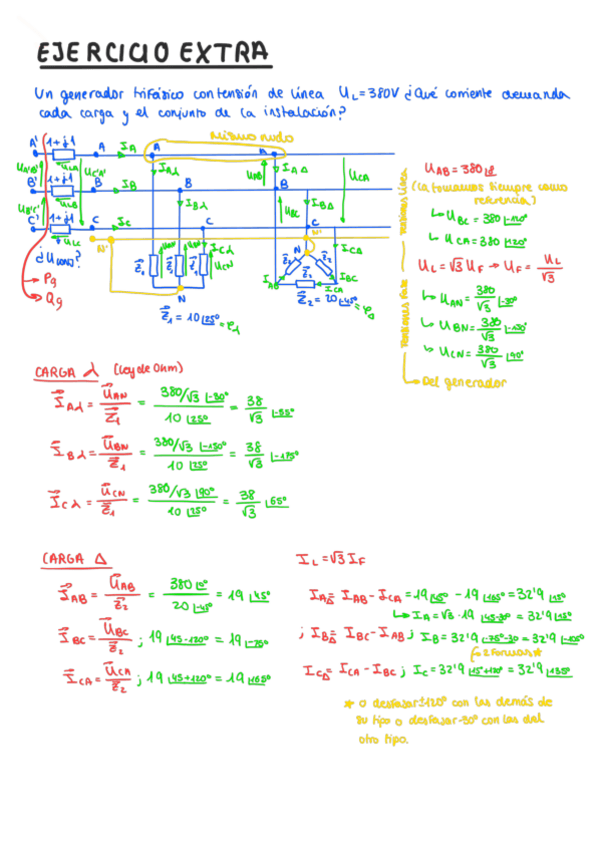 EJERCICIO EXTRA
Un generador trifásico con tensión de línea U_L = 380V ¿Qué corriente demanda
cada carga y el conjunto de la instalación?
mismo nudo
A' 1+j1 A I_A A A
I_Aλ U_AB I_AΔ U_CA
B' 1+j1 B I_B B B
I_Bλ U_BC I_BΔ
C' 1+j1 C I_C C C
I_Cλ I_CΔ
U_A'B' U_B'C' U_C'A'
N' N'
¿U_COND?
Pg
Qg
Z_1 Z_1 Z_1 U_CN
N
Z_1 = 10∠25° = φλ
I_AB Z_2 Z_2 I_BC
I_CA
Z_2 = 20∠-45° = φΔ
TENSIONES LÍNEA
U_AB = 380∠0°
(La tomamos siempre como
referencia)
↳ U_BC = 380∠-120°
↳ U_CA = 380∠120°
U_L = √3 U_F → U_F = U_L/√3
TENSIONES FASE
↳ U_AN = 380/√3 ∠-30°
↳ U_BN = 380/√3 ∠-150°
↳ U_CN = 380/√3 ∠90°
Del generador
CARGA λ (Ley de Ohm)
I_Aλ = U_AN/Z_1 = 380/√3∠-30° / 10∠25° = 38/√3 ∠-55°
I_Bλ = U_BN/Z_1 = 380/√3∠-150° / 10∠25° = 38/√3 ∠-175°
I_Cλ = U_CN/Z_1 = 380/√3∠90° / 10∠25° = 38/√3 ∠65°
CARGA Δ I_L = √3 I_F
I_AB = U_AB/Z_2 = 380∠0° / 20∠-45° = 19∠45°
I_BC = U_BC/Z_2 ; 19∠45-120° = 19∠-75°
I_CA = U_CA/Z_2 ; 19∠45+120° = 19∠165°
I_AΔ = I_AB - I_CA = 19∠45° - 19∠165° = 32'9∠15°
↳ I_A = √3 · 19∠45-30° = 32'9∠15°
; I_BΔ = I_BC - I_AB ; I_B = 32'9∠-75°-30 = 32'9∠-105°
2 Formas*
I_CΔ = I_CA - I_BC ; I_C = 32'9∠15°+120° = 32'9∠135°
* o desfasar ±120° con las demás de
su tipo o desfasar -30° con las del
otro tipo.